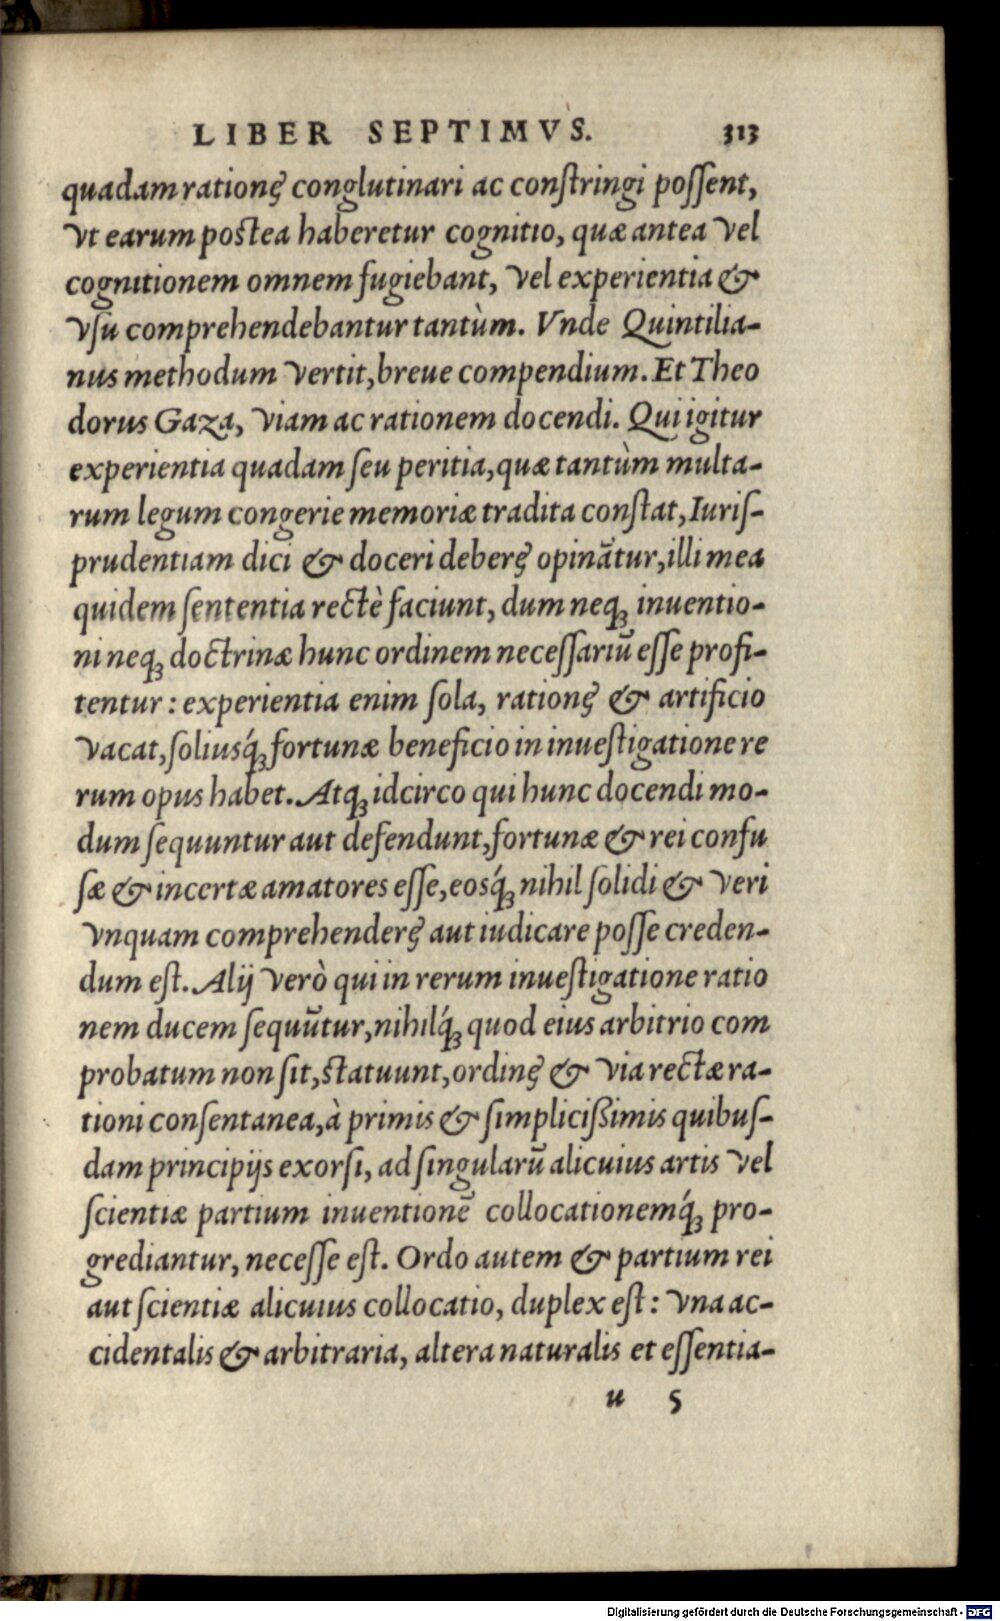 LIBER SEPTIMVS. 313
quadam rationę conglutinari ac conſtringi poſſent,
vt earum poſtea haberetur cognitio, quæ antea vel
cognitionem omnem fugiebant, vel experientia &
vſu comprehendebantur tantùm. Vnde Quintilia-
nus methodum vertit, breue compendium. Et Theo
dorus Gaza, viam ac rationem docendi. Qui igitur
experientia quadam ſeu peritia, quæ tantùm multa-
rum legum congerie memoriæ tradita conſtat, Iuriſ-
prudentiam dici & doceri deberę opinãtur, illi mea
quidem ſententia rectè faciunt, dum neq; inuentio-
ni neq; doctrinæ hunc ordinem neceſſariũ eſſe profi-
tentur: experientia enim ſola, rationę & artificio
vacat, ſoliusq́; fortunæ beneficio in inueſtigatione re
rum opus habet. Atq; idcirco qui hunc docendi mo-
dum ſequuntur aut defendunt, fortunæ & rei confu
ſæ & incertæ amatores eſſe, eosq́; nihil ſolidi & veri
vnquam comprehenderę aut iudicare poſſe creden-
dum eſt. Alij verò qui in rerum inueſtigatione ratio
nem ducem ſequũtur, nihilq́; quod eius arbitrio com
probatum non ſit, ſtatuunt, ordinę & via rectæ ra-
tioni conſentanea, à primis & ſimpliciſsimis quibuſ-
dam principijs exorſi, ad ſingularũ alicuius artis vel
ſcientiæ partium inuentionẽ collocationemq́; pro-
grediantur, neceſſe eſt. Ordo autem & partium rei
aut ſcientiæ alicuius collocatio, duplex eſt: vna ac-
cidentalis & arbitraria, altera naturalis et eſſentia-
u 5
Digitalisierung gefördert durch die Deutsche Forschungsgemeinschaft - DFG